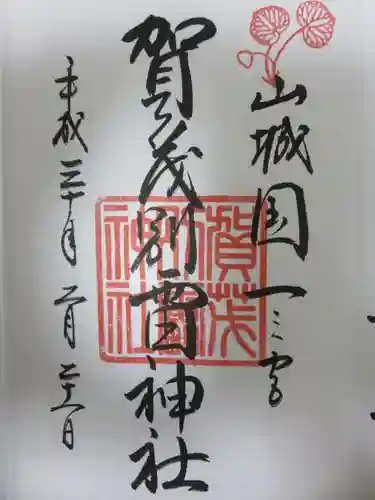 山城国一之宮
賀茂別雷神社
平成三十年二月二十一日
賀茂
別雷
神社